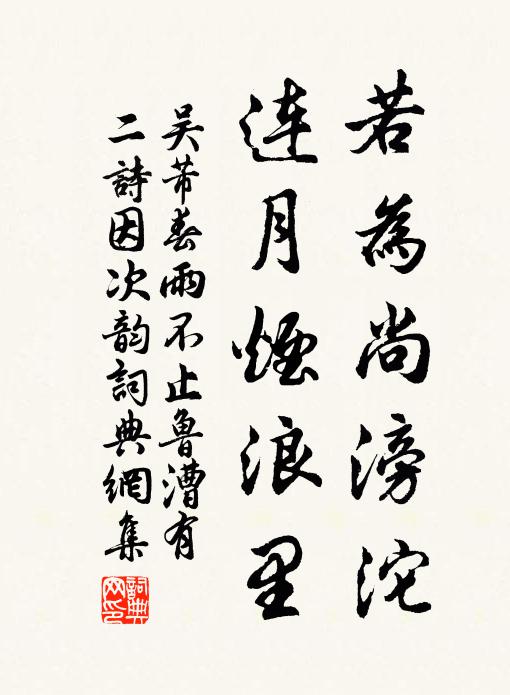 若為尚滂沱
連月煙浪里
吴芾春雨不止魯漕有
二詩因次韵詞典網集
詞典